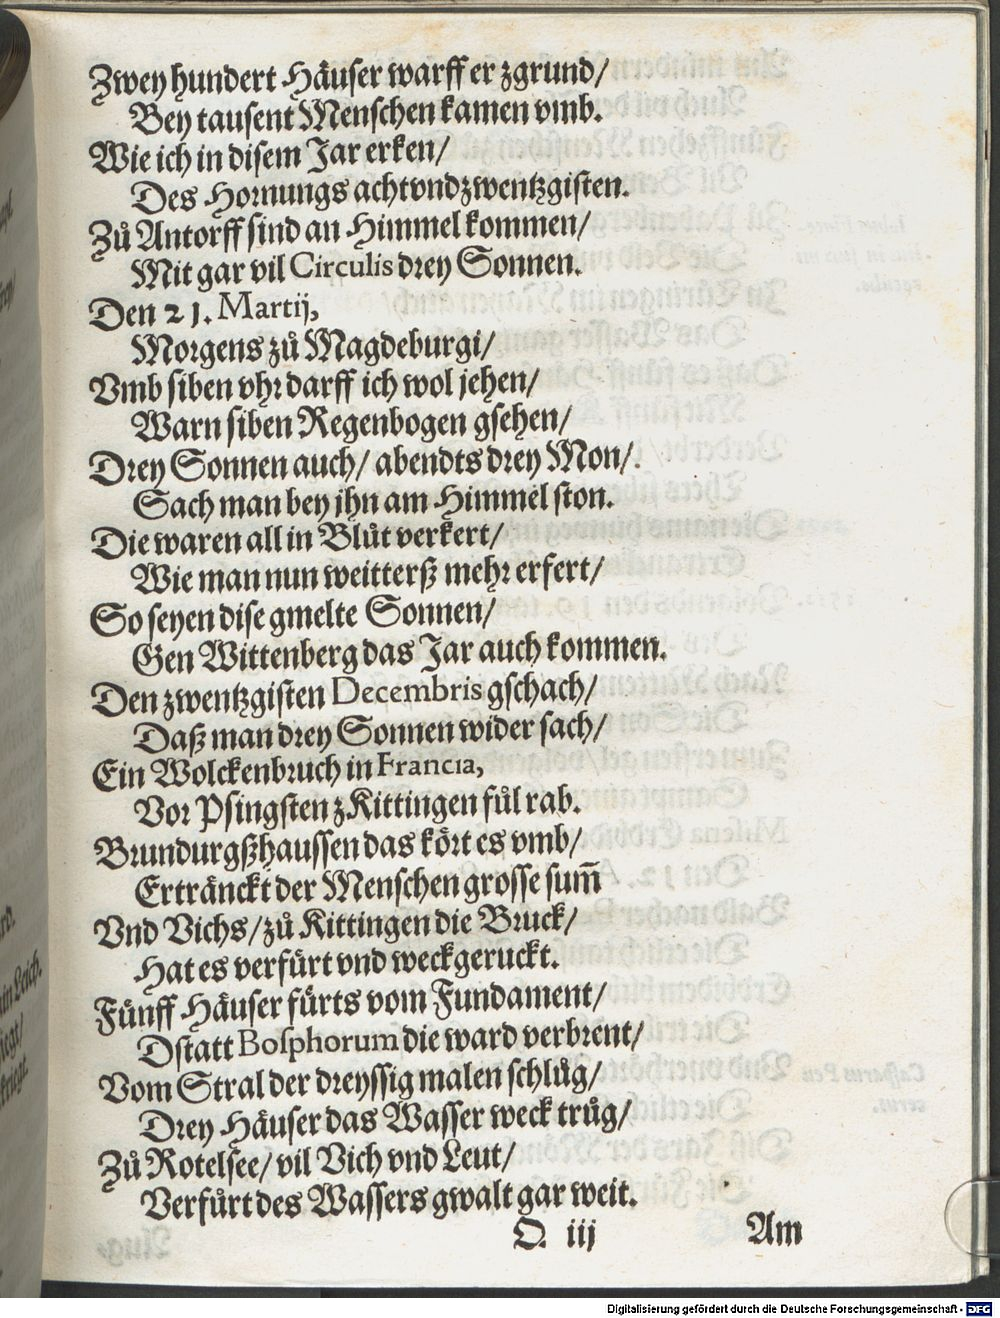 Zwey hundert Häuser warff er zgrund/
Bey tausent Menschen kamen vmb.
Wie ich in disem Jar erken/
Des Hornungs achtvndzwentzgisten.
Zů Antorff sind an Himmel kommen/
Mit gar vil Circulis drey Sonnen.
Den 21. Martij,
Morgens zů Magdeburgi/
Vmb siben vhr darff ich wol jehen/
Warn siben Regenbogen gsehen/
Drey Sonnen auch/ abendts drey Mon/.
Sach man bey jhn am Himmel ston.
Die waren all in Blůt verkert/
Wie man nun weitterß mehr erfert/
So seyen dise gmelte Sonnen/
Gen Wittenberg das Jar auch kommen.
Den zwentzgisten Decembris gschach/
Daß man drey Sonnen wider sach/
Ein Wolckenbruch in Francia,
Vor Pfingsten z Kittingen fůl rab.
Brundurgßhaussen das kört es vmb/
Ertränckt der Menschen grosse sum̃
Vnd Vichs/ zů Kittingen die Bruck/
Hat es verfürt vnd weckgeruckt.
Fünff Häuser fürts vom Fundament/
Dstatt Bosphorum die ward verbrent/
Vom Stral der dreyssig malen schlůg/
Drey Häuser das Wasser weck trůg/
Zů Rotelsee/ vil Vich vnd Leut/
Verfürt des Wassers gwalt gar weit.
O iij Am
Digitalisierung gefördert durch die Deutsche Forschungsgemeinschaft - DFG